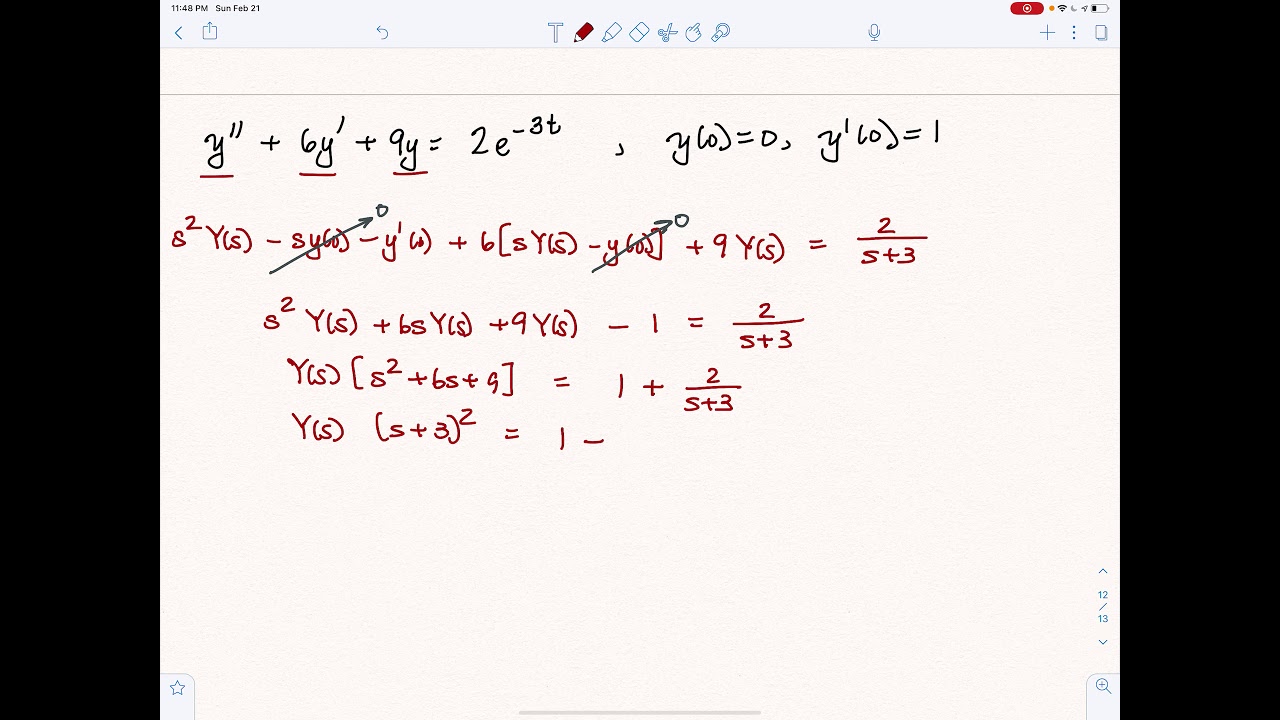 11:48 PM Sun Feb 21
T
y'' + 6y' + 9y = 2e^{-3t} , y(0)=0, y'(0)=1
s^2 Y(s) - sy(0) - y'(0) + 6[sY(s) - y(0)] + 9Y(s) = 2/(s+3)
0 0
s^2 Y(s) + 6sY(s) + 9Y(s) - 1 = 2/(s+3)
Y(s) [s^2 + 6s + 9] = 1 + 2/(s+3)
Y(s) (s+3)^2 = 1 -
12
/
13